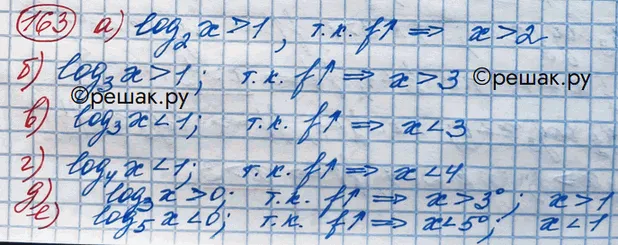 163 а) log₂ x > 1, т.к. f↑ ⇒ x > 2
б) log₃ x > 1; т.к. f↑ ⇒ x > 3 ©решак.ру
©решак.ру
в) log₃ x < 1; т.к. f↑ ⇒ x < 3
г) log₄ x < 1; т.к. f↑ ⇒ x < 4
д) log₃ x > 0; т.к. f↑ ⇒ x > 3⁰; x > 1
е) log₅ x < 0; т.к. f↑ ⇒ x < 5⁰; x < 1